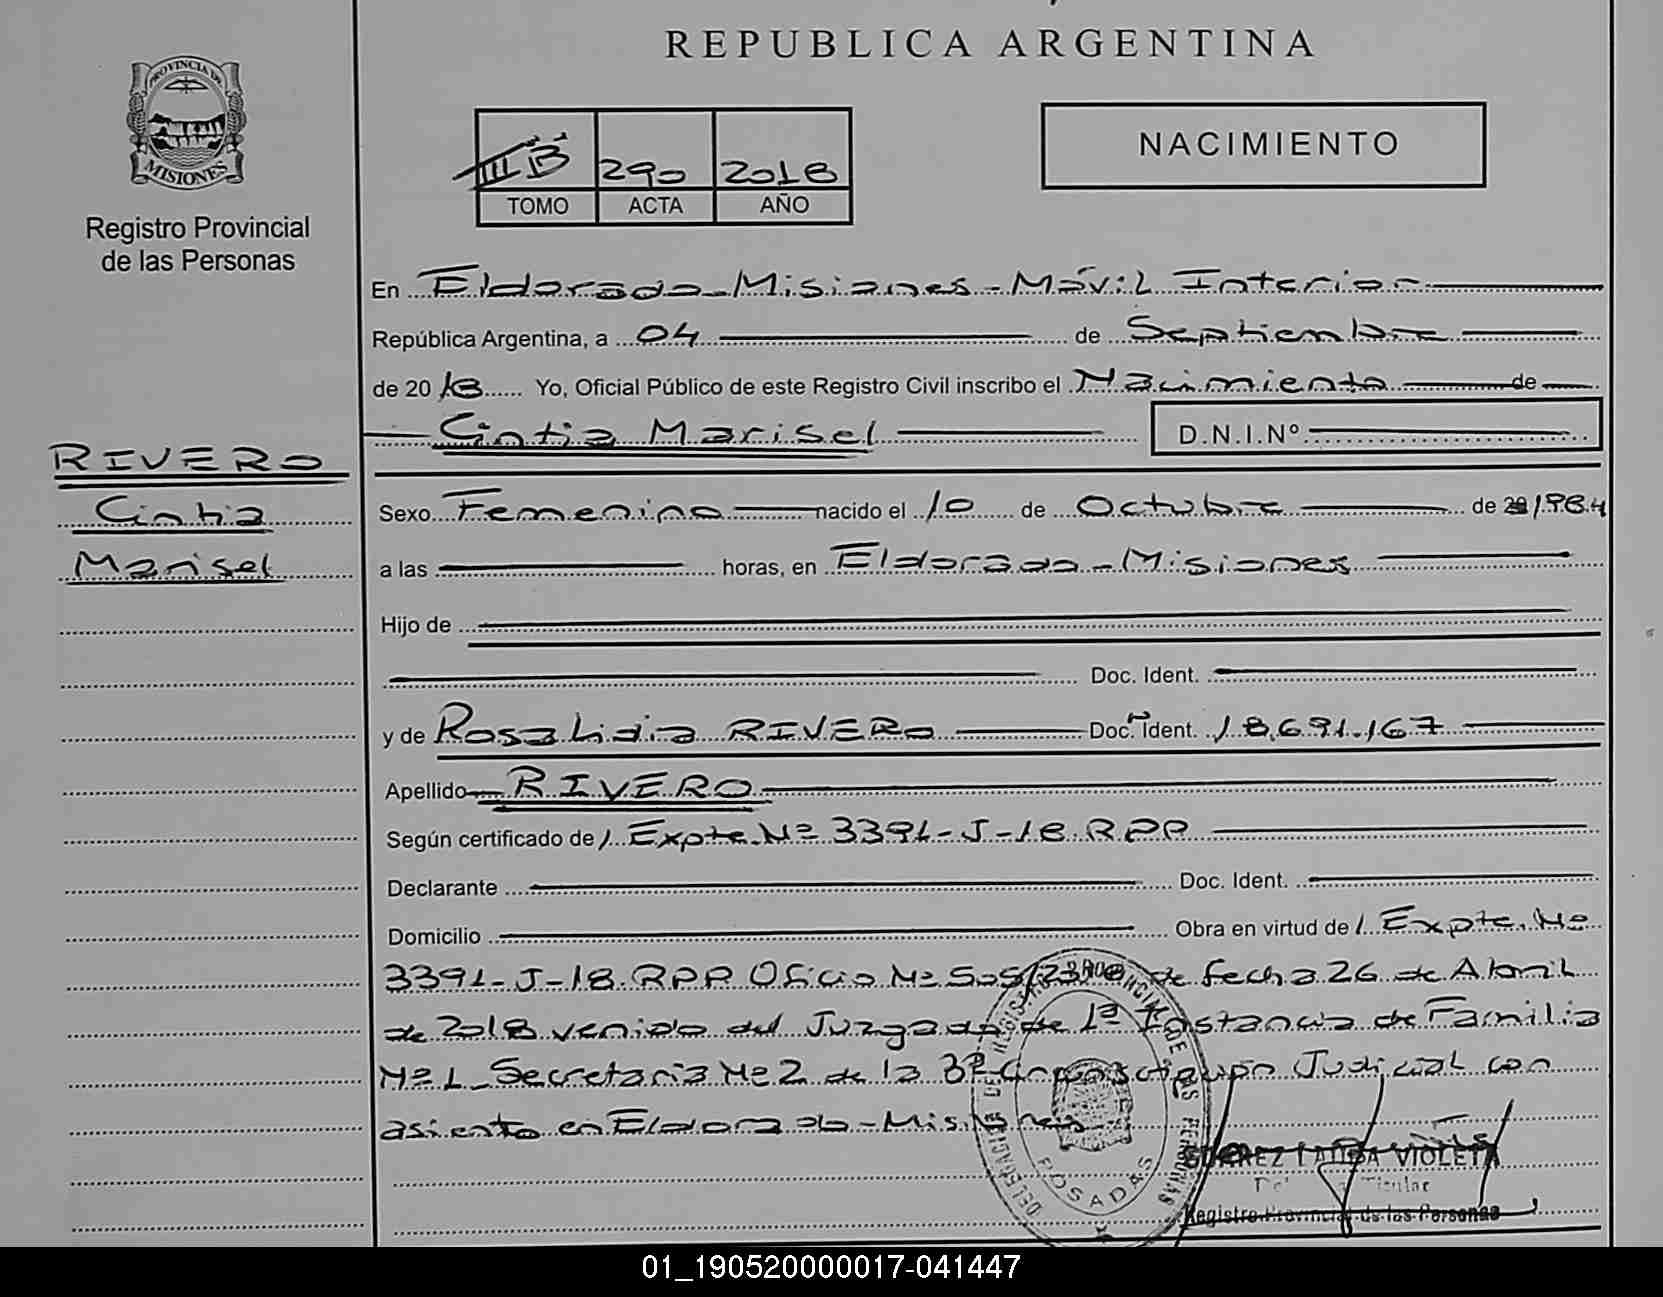 REPUBLICA ARGENTINA
PROVINCIA DE
MISIONES
Registro Provincial
de las Personas
III B 290 2018
TOMO ACTA AÑO
NACIMIENTO
En Eldorado - Misiones - Móvil Interior
República Argentina, a 04 de Septiembre
de 2018 Yo, Oficial Público de este Registro Civil inscribo el Nacimiento de
Cintia Marisel D.N.I.Nº
RIVERO
Cintia
Marisel
Sexo Femenino nacido el 10 de Octubre de 1984
a las horas, en Eldorado - Misiones
Hijo de
Doc. Ident.
y de Rosa Lidia RIVERO Doc. Ident. 18.691.167
Apellido RIVERO
Según certificado de / Expte. Nº 3391-J-18. RPP
Declarante Doc. Ident.
Domicilio Obra en virtud de / Expte. Nº
3391-J-18. RPP Oficio Nº 505/2018 de fecha 26 de Abril
de 2018 venido del Juzgado de 1ª Instancia de Familia
Nº 1 - Secretaria Nº 2 de la 3ª Circunscripción Judicial con
asiento en Eldorado - Misiones
POSADAS
VIOLETA
Titular
Registro Provincial de las Personas
01_190520000017-041447